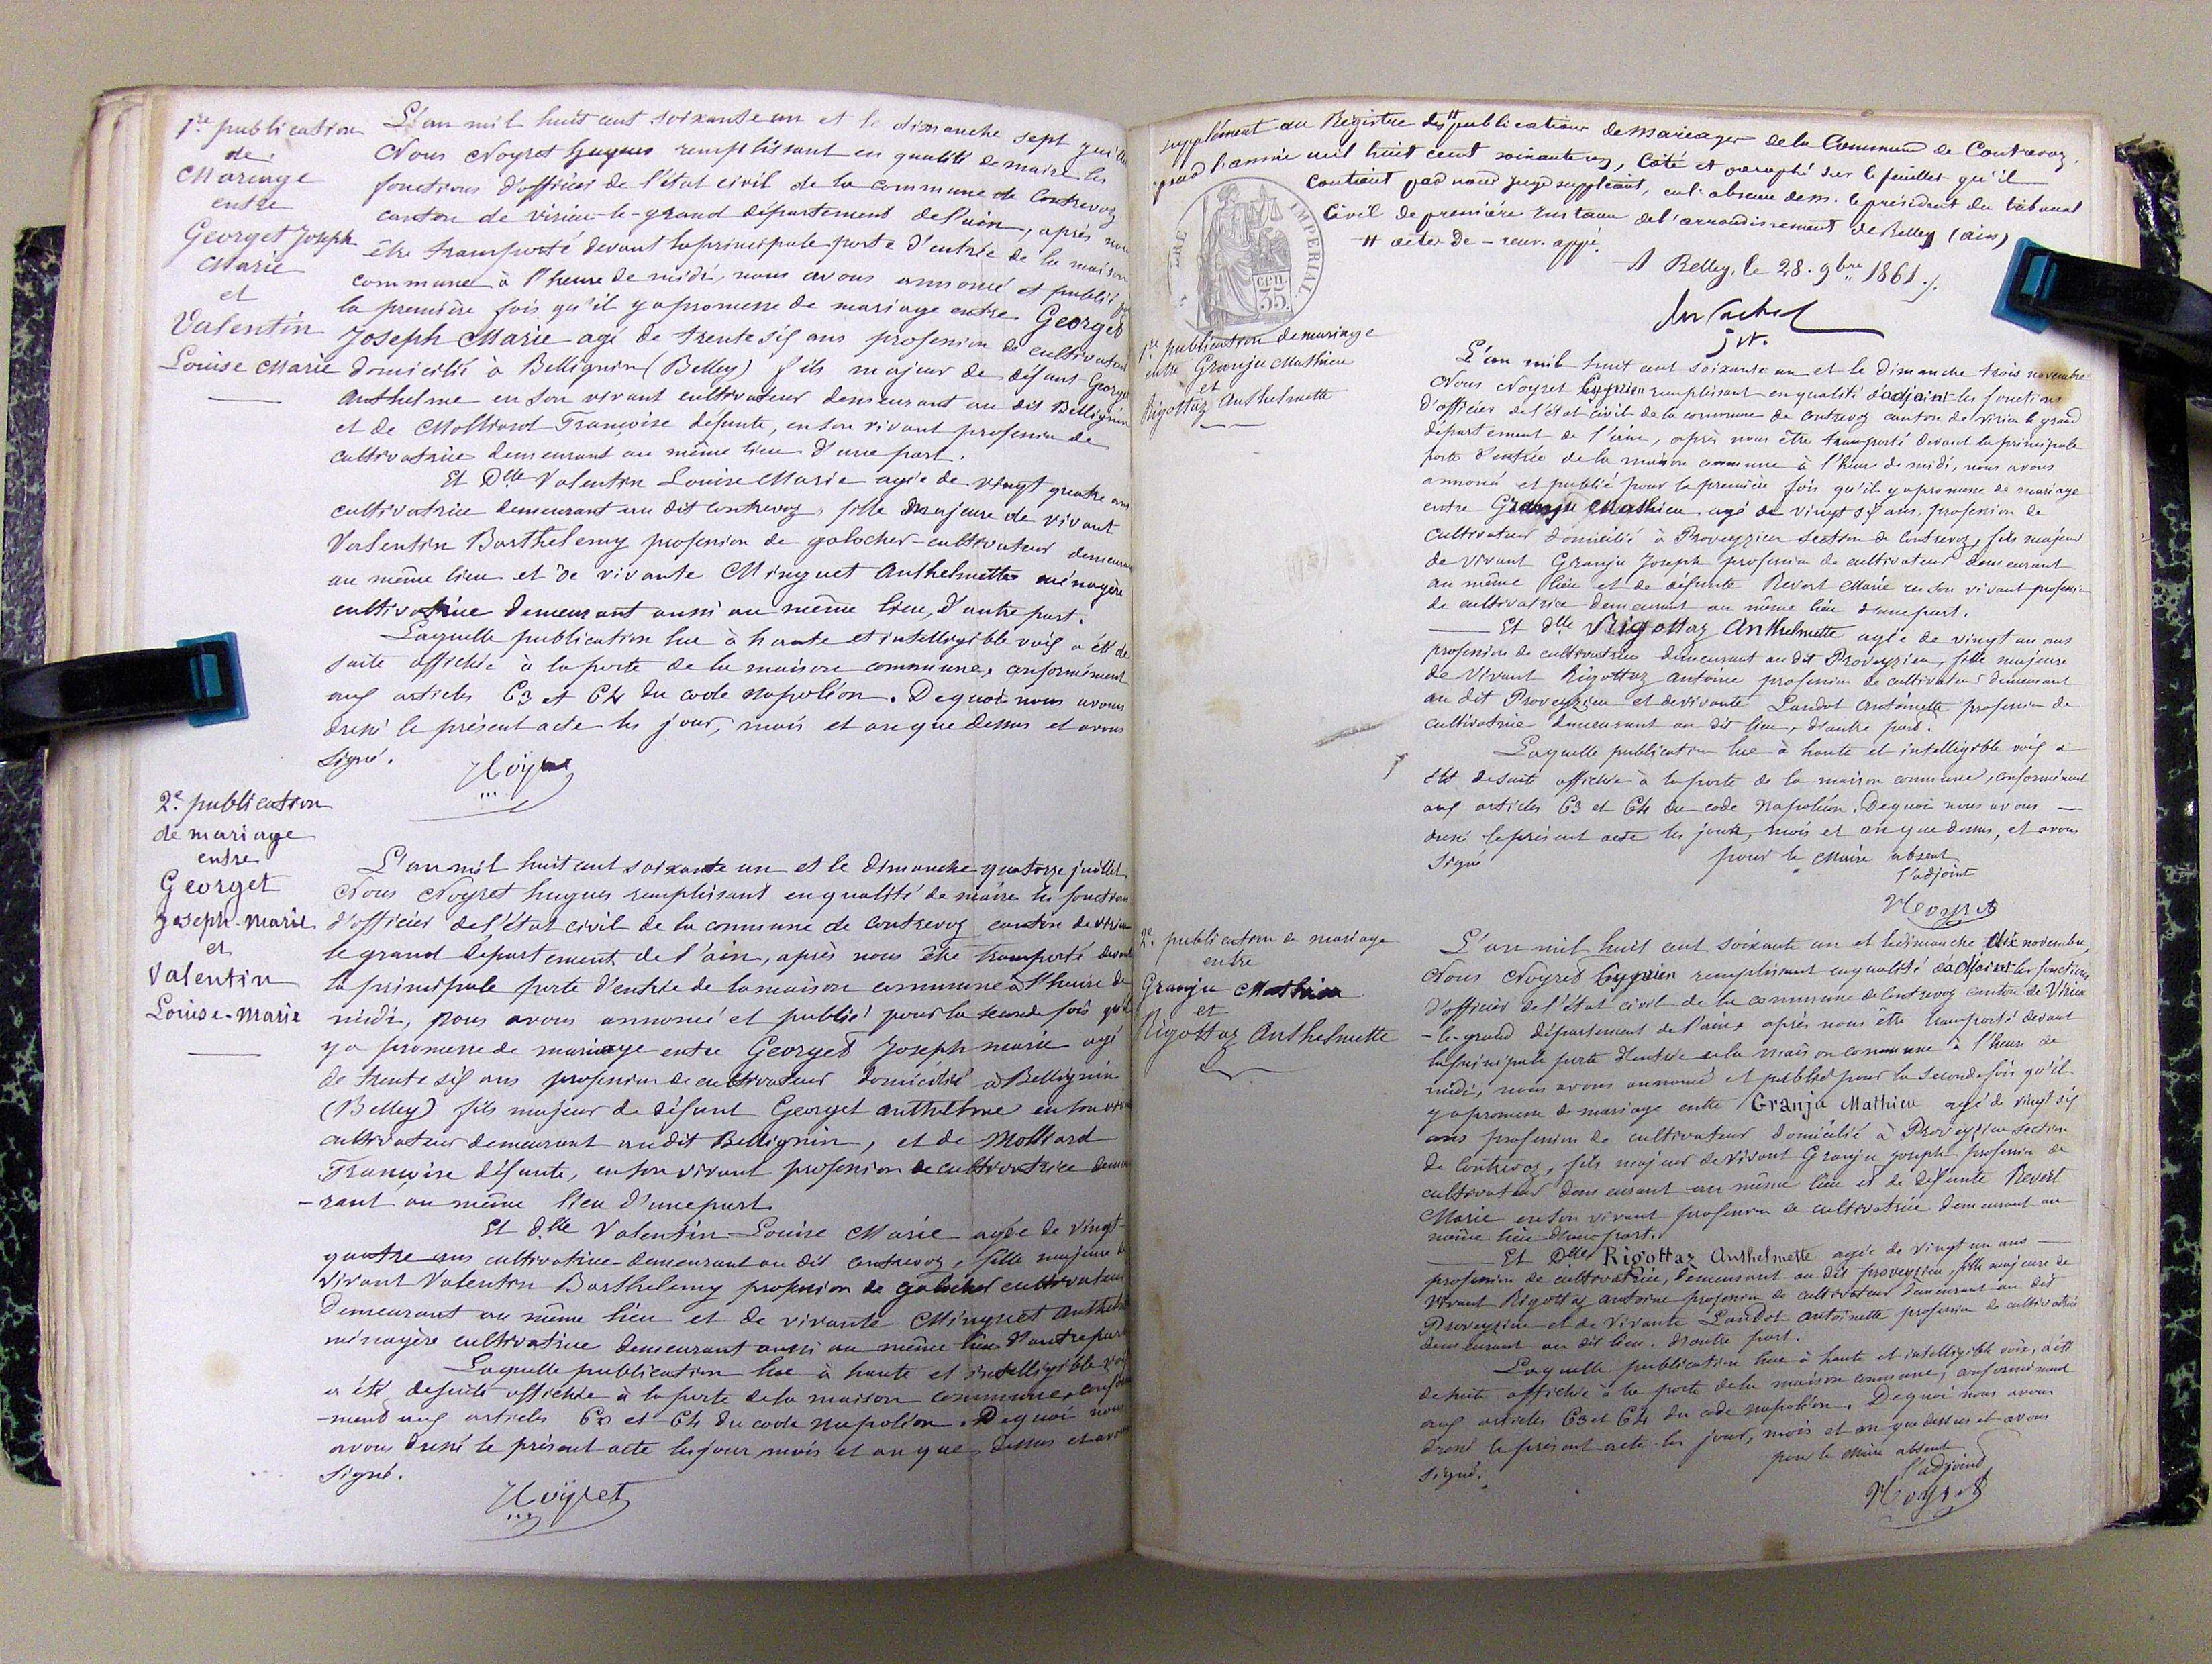 1re publication
de
Mariage
entre
Georget Joseph
Marie
et
Valentin
Louise Marie
L'an mil huit cent soixante un et le dimanche sept juillet
Nous Noyret hugues remplissant en qualité de maire les
fonctions d'officier de l'état civil de la commune de Contrevoz
canton de virieu-le-grand département de l'ain, après nous
être transporté devant la principale porte d'entrée de la maison
commune à l'heure de midi, nous avons annoncé et publié pour
la première fois qu'il y a promesse de mariage entre Georget
Joseph Marie agé de trente six ans profession de cultivateur
domicilié à Bellignin (Belley) fils majeur de défunt Georget
Anthelme en son vivant cultivateur demeurant au dit Bellignin
et de Molliard Françoise défunte, en son vivant profession de
cultivatrice demeurant au même lieu d'une part.
Et Dlle Valentin Louise Marie agée de vingt quatre ans
cultivatrice demeurant au dit contrevoz, fille majeure de vivant
Valentin Barthelemy profession de galocher-cultivateur demeurant
au même lieu et de vivante Minguet Anthelmette ménagère
cultivatrice demeurant aussi au même lieu, d'autre part.
Laquelle publication lue à haute et intelligible voix a été de
suite affichée à la porte de la maison commune, conformément
aux articles 63 et 64 du code napoléon. De quoi nous avons
dressé le présent acte les jour, mois et an que dessus et avons
signé.
Noyret
2e publication
de mariage
entre
Georget
Joseph-Marie
et
Valentin
Louise-Marie
L'an mil huit cent soixante un et le dimanche quatorze juillet
Nous Noyret hugues remplissant en qualité de maire les fonctions
d'officier de l'état civil de la commune de contrevoz canton de virieu
le grand département de l'ain, après nous être transporté devant
la principale porte d'entrée de la maison commune à l'heure de
midi, nous avons annoncé et publié pour la seconde fois qu'il
y a promesse de mariage entre Georget Joseph marie agé
de trente six ans profession de cultivateur domicilié à Bellignin
(Belley) fils majeur de défunt Georget anthelme en son vivant
cultivateur demeurant au dit Bellignin, et de Molliard
Françoise défunte, en son vivant profession de cultivatrice demeu
-rant au même lieu d'une part
Et dlle Valentin Louise Marie agée de vingt-
quatre ans cultivatrice demeurant au dit contrevoz, fille majeure de
vivant Valentin Barthelemy profession de galocher cultivateur
demeurant au même lieu et de vivante Minguet Anthelmette
ménagère cultivatrice demeurant aussi au même lieu d'autre part
Laquelle publication lue à haute et intelligible voix
a été de suite affichée à la porte de la maison commune, conformé
-ment aux articles 63 et 64 du code napoléon. De quoi nous
avons dressé le présent acte les jour, mois et an que dessus et avons
signé.
Noyret
supplément au Registre des # publications de mariages de la Commune de Contrevoz,
pour l'année mil huit cent soixante un, coté et paraphé sur le feuillet qu'il
contient par nous juge suppléant, en l'absence de m. le président du tribunal
Civil de première Instance de l'arrondissement de Belley (ain)
# actes de - renv. appé.
A Belley, le 28. 9bre 1861.
IMPERIAL
cen.
35.
1re publication de mariage
entre Granju Mathieu
et
Rigottaz Anthelmette
L'an mil huit cent soixante un et le dimanche trois novembre
Nous Noyret Cyprien remplissant en qualité d'adjoint les fonctions
d'officier de l'état civil de la commune de contrevoz canton de virieu le grand
département de l'ain, après nous être transporté devant la principale
porte d'entrée de la maison commune à l'heure de midi, nous avons
annoncé et publié pour la première fois qu'il y a promesse de mariage
entre Granju Mathieu agé de vingt six ans, profession de
cultivateur domicilié à Proveyzieu section de Contrevoz, fils majeur
de vivant Granju Joseph profession de cultivateur demeurant
au même lieu et de défunte Revert Marie en son vivant profession
de cultivatrice demeurant au même lieu d'une part.
Et dlle Rigottaz Anthelmette agée de vingt un ans
profession de cultivatrice demeurant au dit Proveyzieu, fille majeure
de Vivant Rigottaz antoine profession de cultivateur demeurant
au dit Proveyzieu et de vivante Landot Antoinette profession de
cultivatrice demeurant au dit lieu, d'autre part.
Laquelle publication lue à haute et intelligible voix a
été de suite affichée à la porte de la maison commune, conformément
aux articles 63 et 64 du code Napoléon. De quoi nous avons
dressé le présent acte les jour, mois et an que dessus, et avons
signé
pour le Maire absent
l'adjoint
Noyret
2e publication de mariage
entre
Granju Mathieu
et
Rigottaz Anthelmette
L'an mil huit cent soixante un et le dimanche dix novembre,
Nous Noyret Cyprien remplissant en qualité d'adjoint les fonctions
d'officier de l'état civil de la commune de Contrevoz canton de Virieu
-le-grand département de l'ain, après nous être transporté devant
la principale porte d'entrée de la maison commune à l'heure de
midi, nous avons annoncé et publié pour la seconde fois qu'il
y a promesse de mariage entre Granju Mathieu agé de vingt six
ans profession de cultivateur domicilié à Proveyzieu section
de Contrevoz, fils majeur de vivant Granju joseph profession de
cultivateur demeurant au même lieu et de défunte Revert
Marie en son vivant profession de cultivatrice demeurant au
même lieu d'une part.
Et Dlle Rigottaz Anthelmette agée de vingt un ans
profession de cultivatrice, demeurant au dit proveyzieu, fille majeure de
vivant Rigottaz antoine profession de cultivateur demeurant au dit
Proveyzieu et de vivante Landot Antoinette profession de cultivatrice
demeurant au dit lieu. d'autre part.
Laquelle publication lue à haute et intelligible voix, a été
de suite affichée à la porte de la maison commune, conformément
aux articles 63 et 64 du code napoléon. De quoi nous avons
dressé le présent acte les jour, mois et an que dessus et avons
signé.
pour le Maire absent
l'adjoint
Noyret